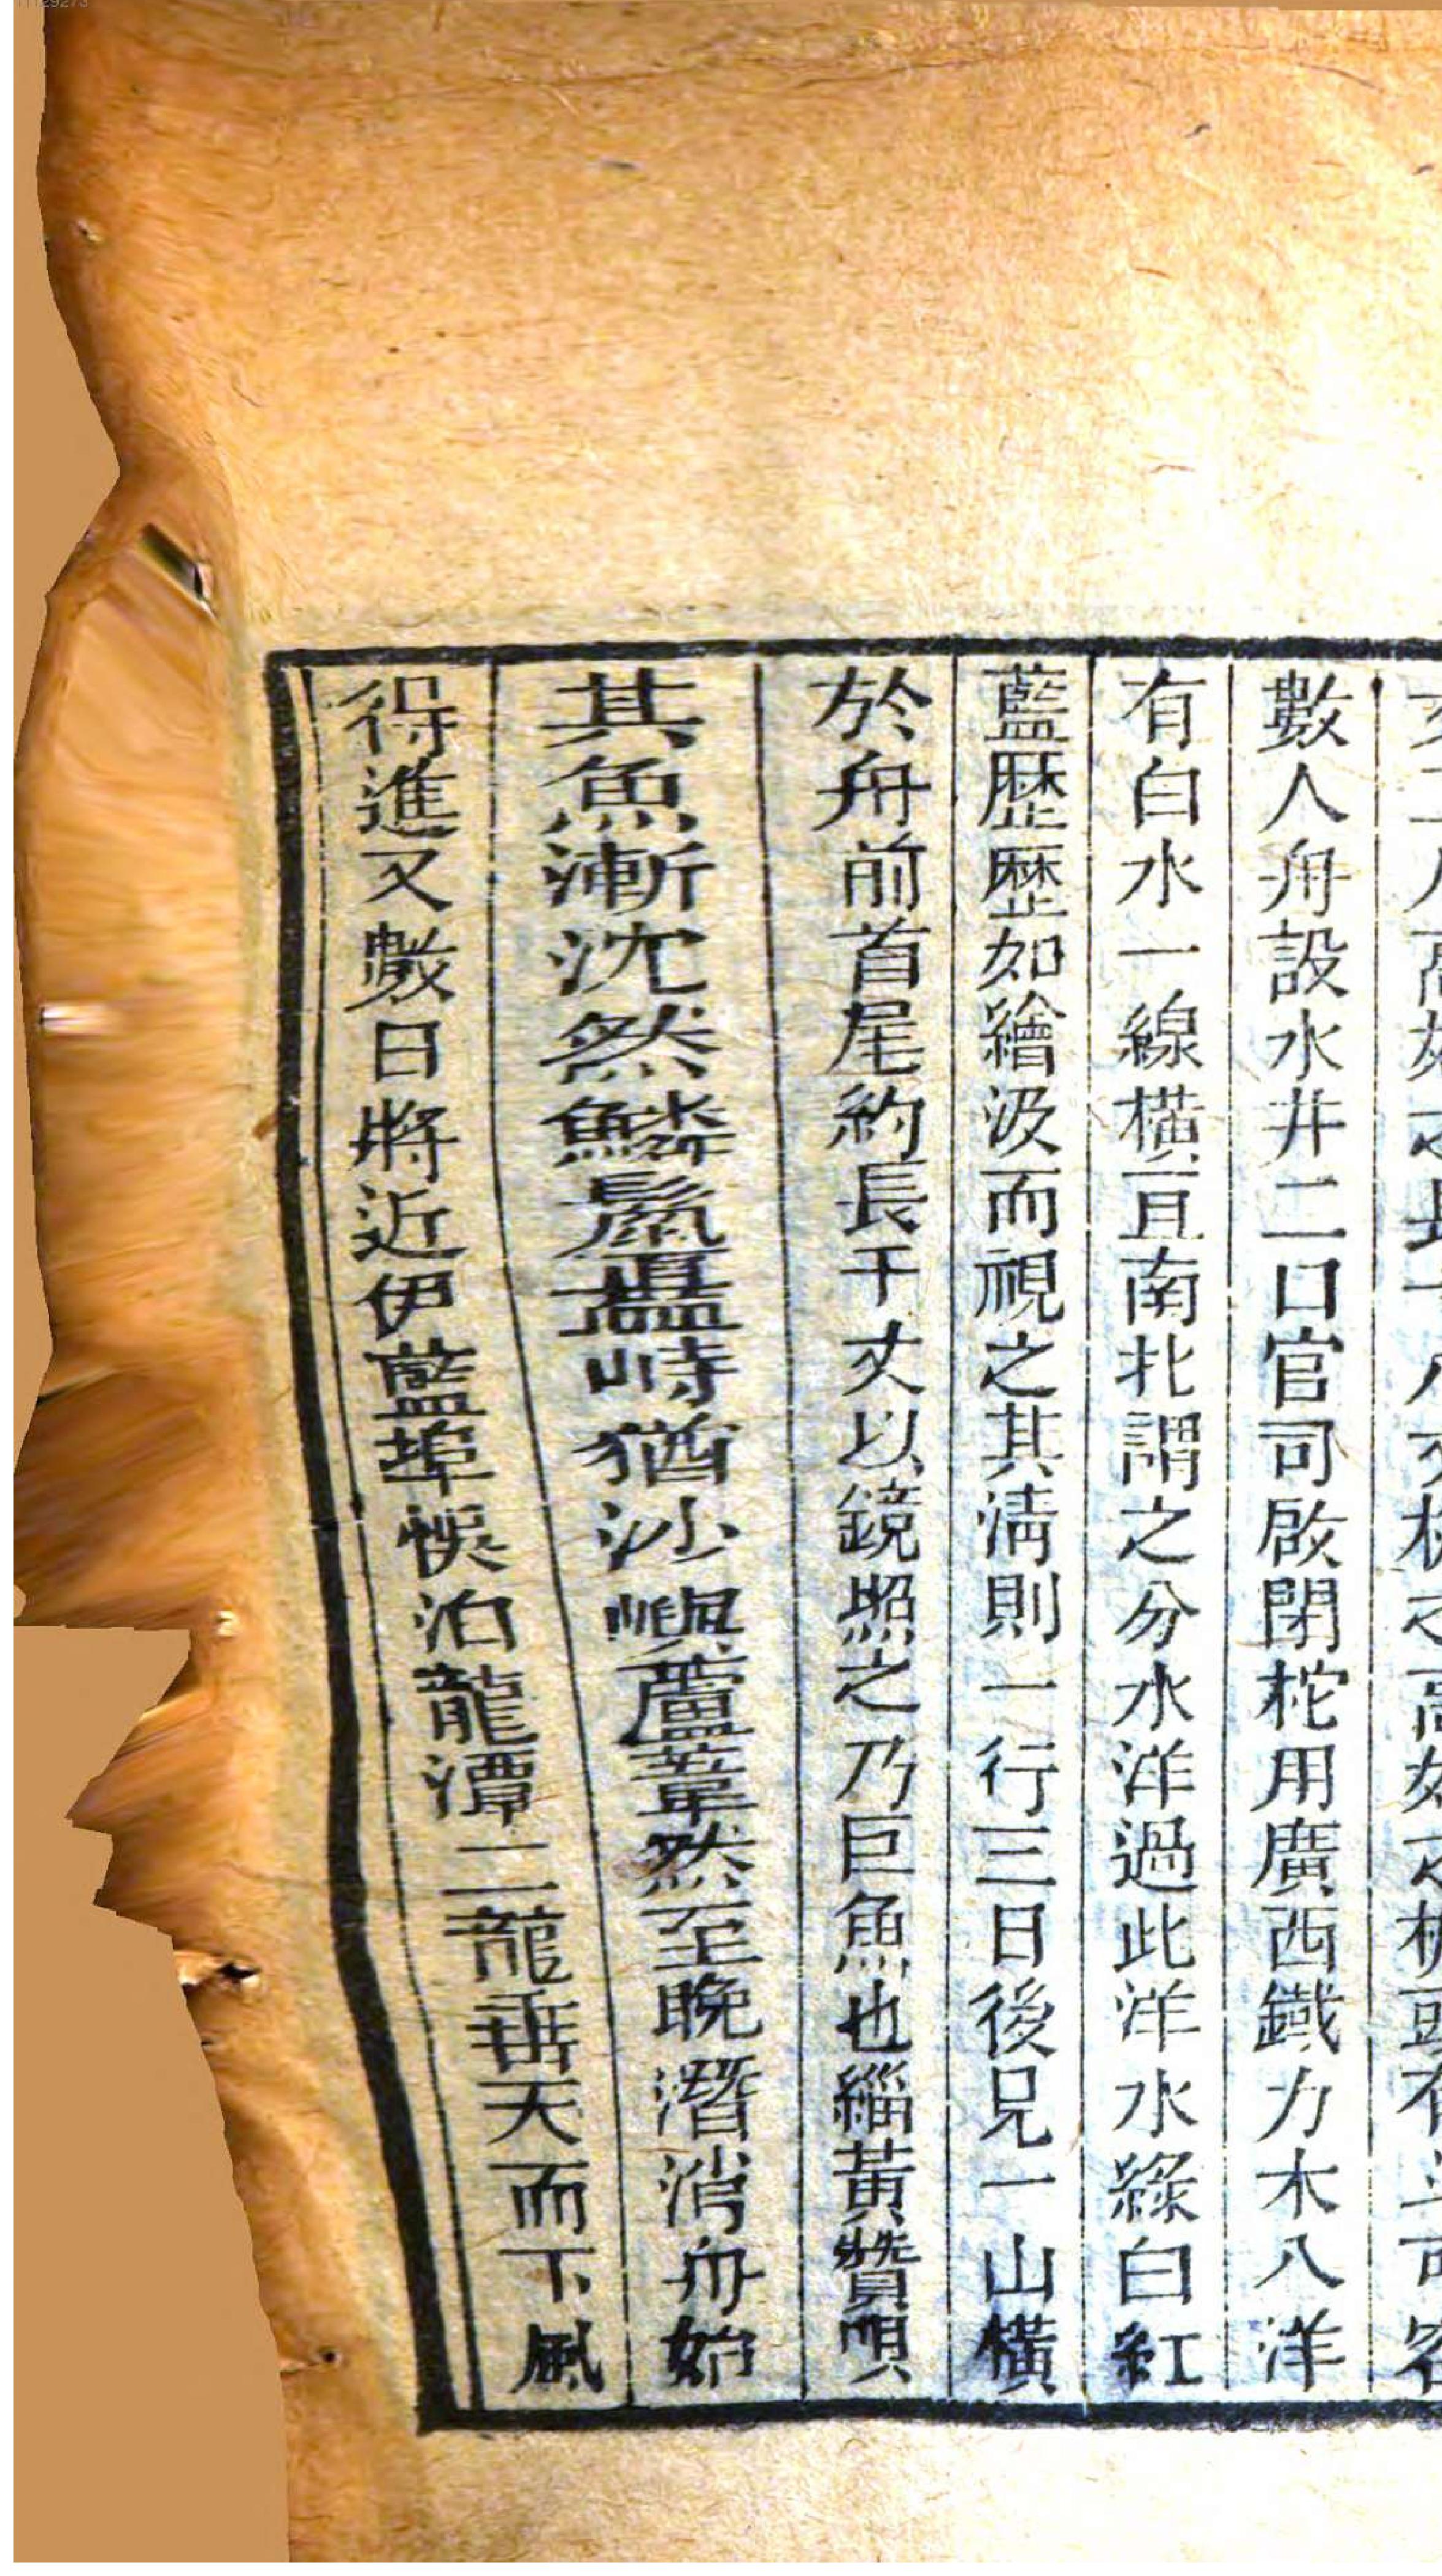 數人舟設水井二口官司啟閉柁用廣西鐵力木八洋
有白水一線橫亘南北謂之分水洋過此洋水綠白紅
藍歷歷如繪汲而視之其淸則一行三日後見一山橫
於舟前首尾約長千丈以鏡照之乃巨魚也緇黃贊唄
其魚漸沈然鱗鬛矗峙猶沙嶼蘆葦然至晩潛消舟始
得進又數日將近伊藍埠悞泊龍潭二龍垂天而下風